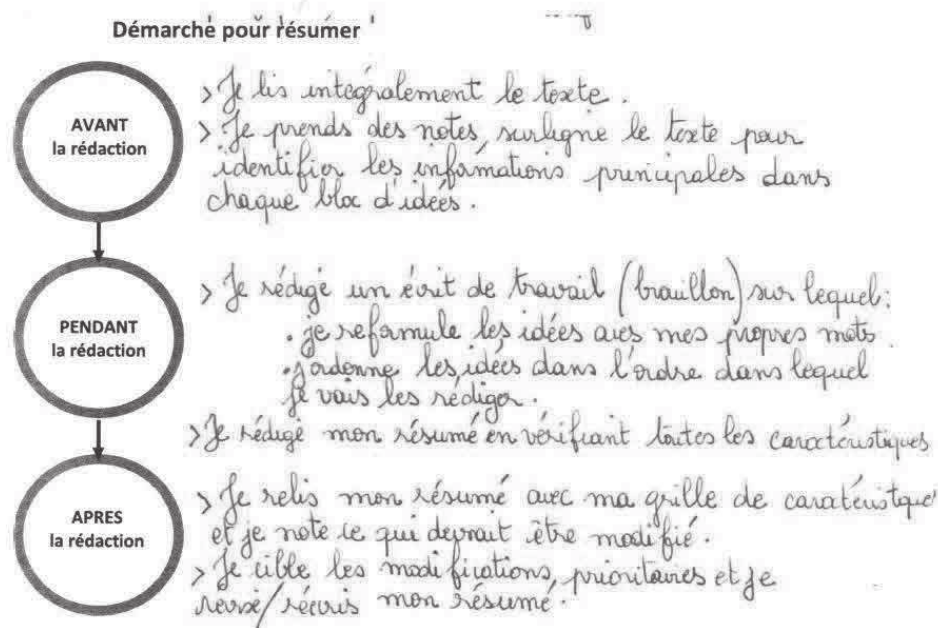 Démarche pour résumer
AVANT
la rédaction
> Je lis intégralement le texte.
> Je prends des notes, surligne le texte pour
identifier les informations principales dans
chaque bloc d'idées.
PENDANT
la rédaction
> Je rédigé un écrit de travail (brouillon) sur lequel:
. je reformule les idées avec mes propres mots.
. j'ordonne les idées dans l'ordre dans lequel
je vais les rédiger.
> Je rédigé mon résumé en vérifiant toutes les caractéristiques
APRES
la rédaction
> Je relis mon résumé avec ma grille de caractéristique
et je note ce qui devrait être modifié.
> Je cible les modifications prioritaires et je
révise/réécris mon résumé.